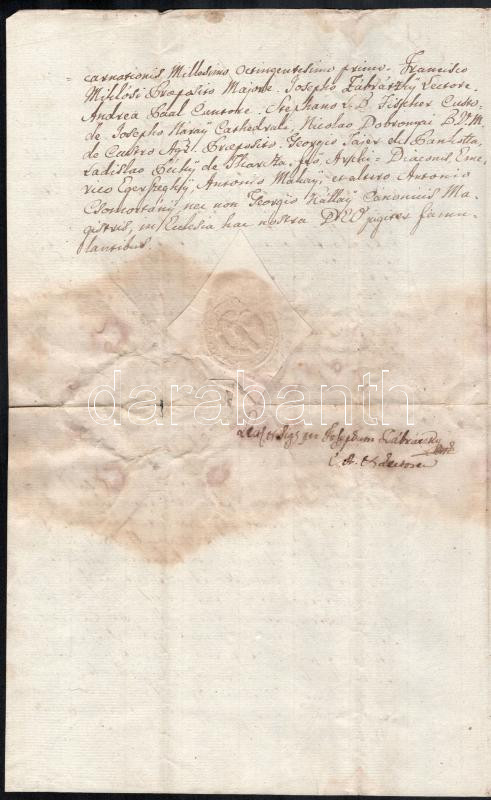 carnationis Millesimo Octingentesimo primo. Francisco
Miklósi Præposito Majore. Josepho Zábráczky Lectore.
Andrea Paal Cantore. Stephano L. B. Fischer Custo-
de Josepho Náray Cathedrali, Nicolao Dobronyai B. V. M.
de Castro Præposito. Georgio
Ladislao de Tharcza, Archi-Diaconis Eme-
rico Egerszeghy, Antonio Makay, et altero Antonio
Csomortányi nec non Georgio Kállay Canonicis Ma-
gistris, in Ecclesia hac nostra DEO jugiter famu-
lantibus.
darabanth
Lect. et per Josephum Zábráczky
C. A. Lectorem